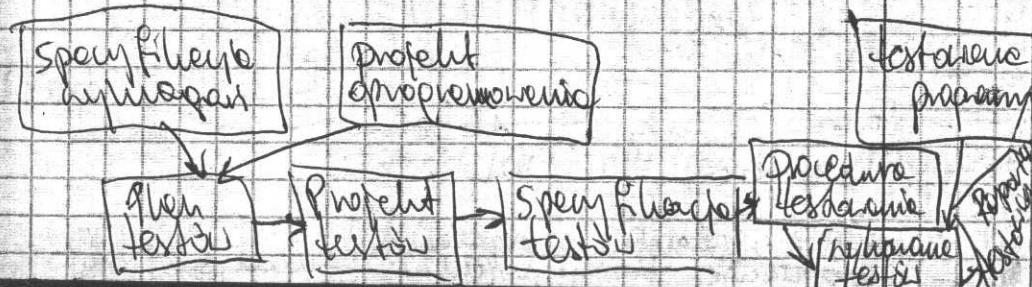 specyfikacja
wymagań
projekt
oprogramowania
testowane
programy
Plan
testów
Projekt
testów
Specyfikacja
testów
Procedura
testowania
wykonane
testów